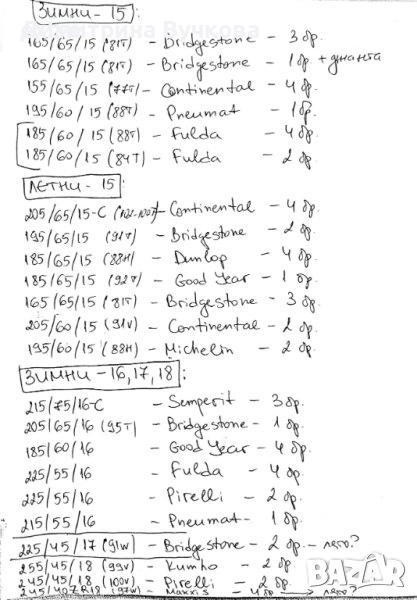 ЗИМНИ - 15:
165/65/15 (81T) - Bridgestone - 3 бр.
165/65/15 (81T) - Bridgestone - 1 бр + джанта
155/65/15 (77T) - Continental - 4 бр.
195/60/15 (88T) - Pneumat - 1 бр.
185/60/15 (88T) - Fulda - 4 бр.
185/60/15 (84T) - Fulda - 2 бр.
ЛЕТНИ - 15:
205/65/15-C (102-100T) - Continental - 4 бр.
195/65/15 (91T) - Bridgestone - 2 бр.
185/65/15 (88H) - Dunlop - 4 бр.
185/65/15 (92T) - Good Year - 1 бр.
165/65/15 (81T) - Bridgestone - 3 бр.
205/60/15 (91V) - Continental - 2 бр.
195/60/15 (88H) - Michelin - 2 бр.
ЗИМНИ - 16,17,18:
215/75/16-C - Semperit - 3 бр.
205/65/16 (95T) - Bridgestone - 1 бр.
185/60/16 - Good Year - 4 бр.
225/55/16 - Fulda - 4 бр.
225/55/16 - Pirelli - 2 бр.
215/55/16 - Pneumat - 1 бр.
225/45/17 (91W) - Bridgestone - 2 бр. - лято?
255/45/18 (99V) - Kumho - 2 бр.
245/45/18 (100V) - Pirelli - 2 бр.
245/40ZR18 (97W) - Maxxis - 4 бр → лято?
BAZAR